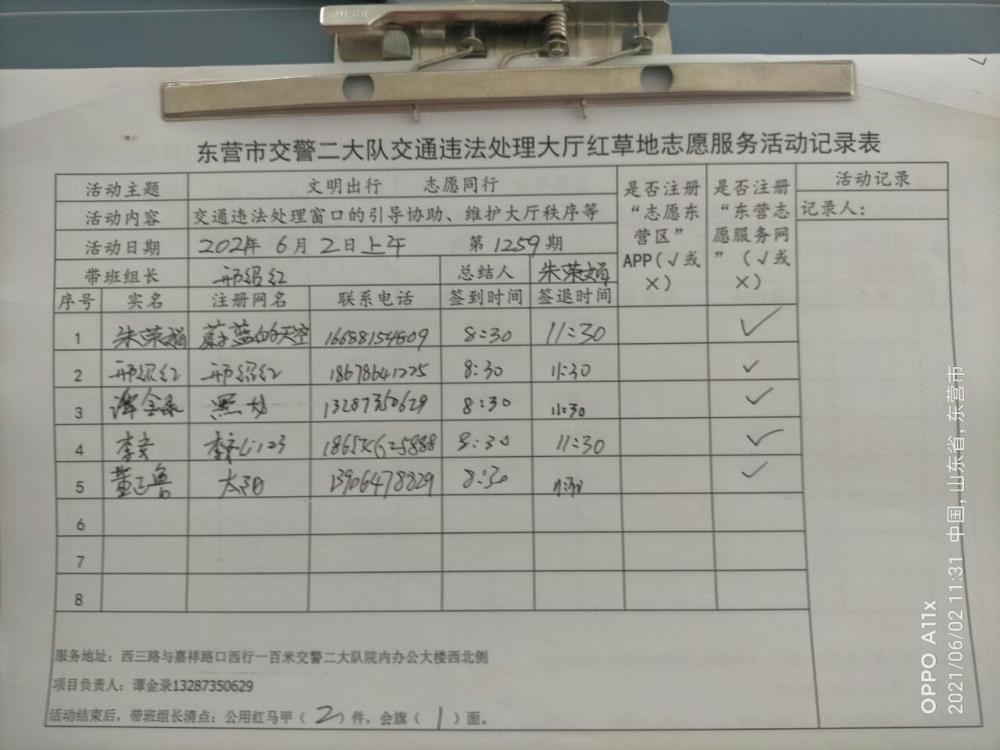 东营市交警二大队交通违法处理大厅红草地志愿服务活动记录表
活动主题 文明出行 志愿同行 是否注册“志愿东营区”APP(√或×) 是否注册“东营志愿服务网”(√或×) 活动记录
活动内容 交通违法处理窗口的引导协助、维护大厅秩序等 记录人：
活动日期 2021年 6月 2日上午 第1259期
带班组长 邢绍红 总结人 朱荣娟
序号 实名 注册网名 联系电话 签到时间 签退时间
1 朱荣娟 蔚蓝的天空 8:30 11:30 √
2 邢绍红 邢绍红 18678641225 8:30 11:30 √
3 谭金录 13287350629 8:30 11:30 √
4 8:30 11:30 √
5 太阳 13906478829 8:30 11:30 √
6
7
8
服务地址：西三路与嘉祥路口西行一百米交警二大队院内办公大楼西北侧
项目负责人：谭金录13287350629
活动结束后，带班组长清点：公用红马甲（2）件，会旗（1）面。
OPPO A11x
2021/06/02 11:31 中国, 山东省, 东营市